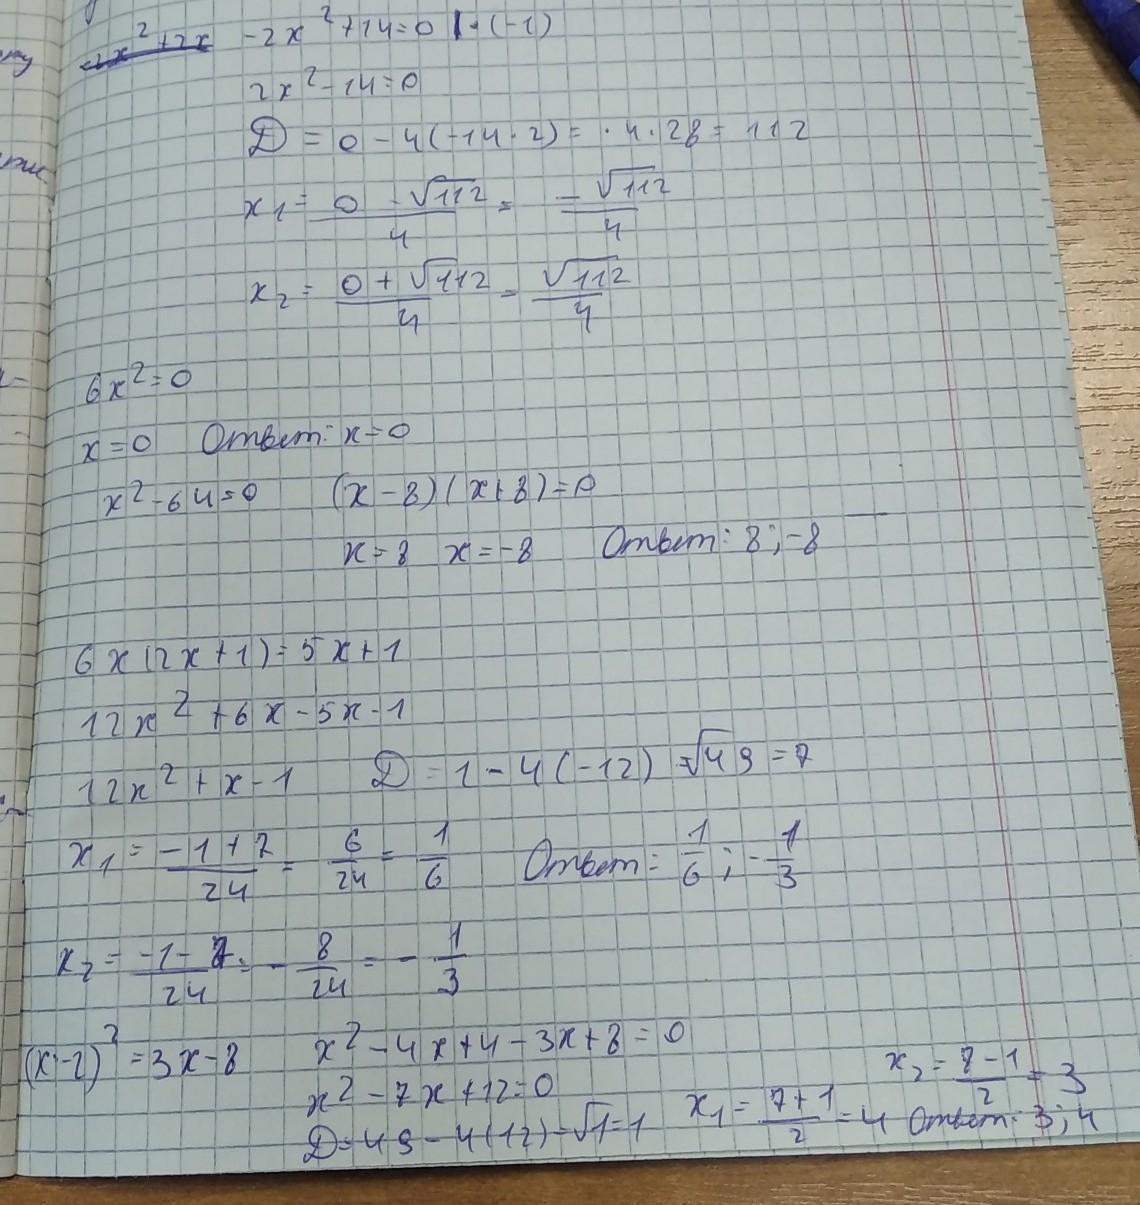 -2x²+14=0 |·(-1)
2x²-14=0
D = 0 - 4(-14·2) = ·4·28 = 112
x₁ = (0 - √112)/4 = -√112/4
x₂ = (0 + √112)/4 = √112/4
6x²=0
x=0 Ответ: x=0
x²-64=0 (x-8)(x+8)=0
x=8 x=-8 Ответ: 8;-8
6x(2x+1)=5x+1
12x²+6x-5x-1
12x²+x-1 D = 1-4(-12) =√49=7
x₁ = (-1+7)/24 = 6/24 = 1/6 Ответ: 1/6; -1/3
x₂ = (-1-7)/24 = -8/24 = -1/3
(x-2)²=3x-8 x²-4x+4-3x+8=0
x²-7x+12=0 x₂ = (7-1)/2 = 3
D=49-4(12)=√1=1 x₁ = (7+1)/2 = 4 Ответ: 3;4